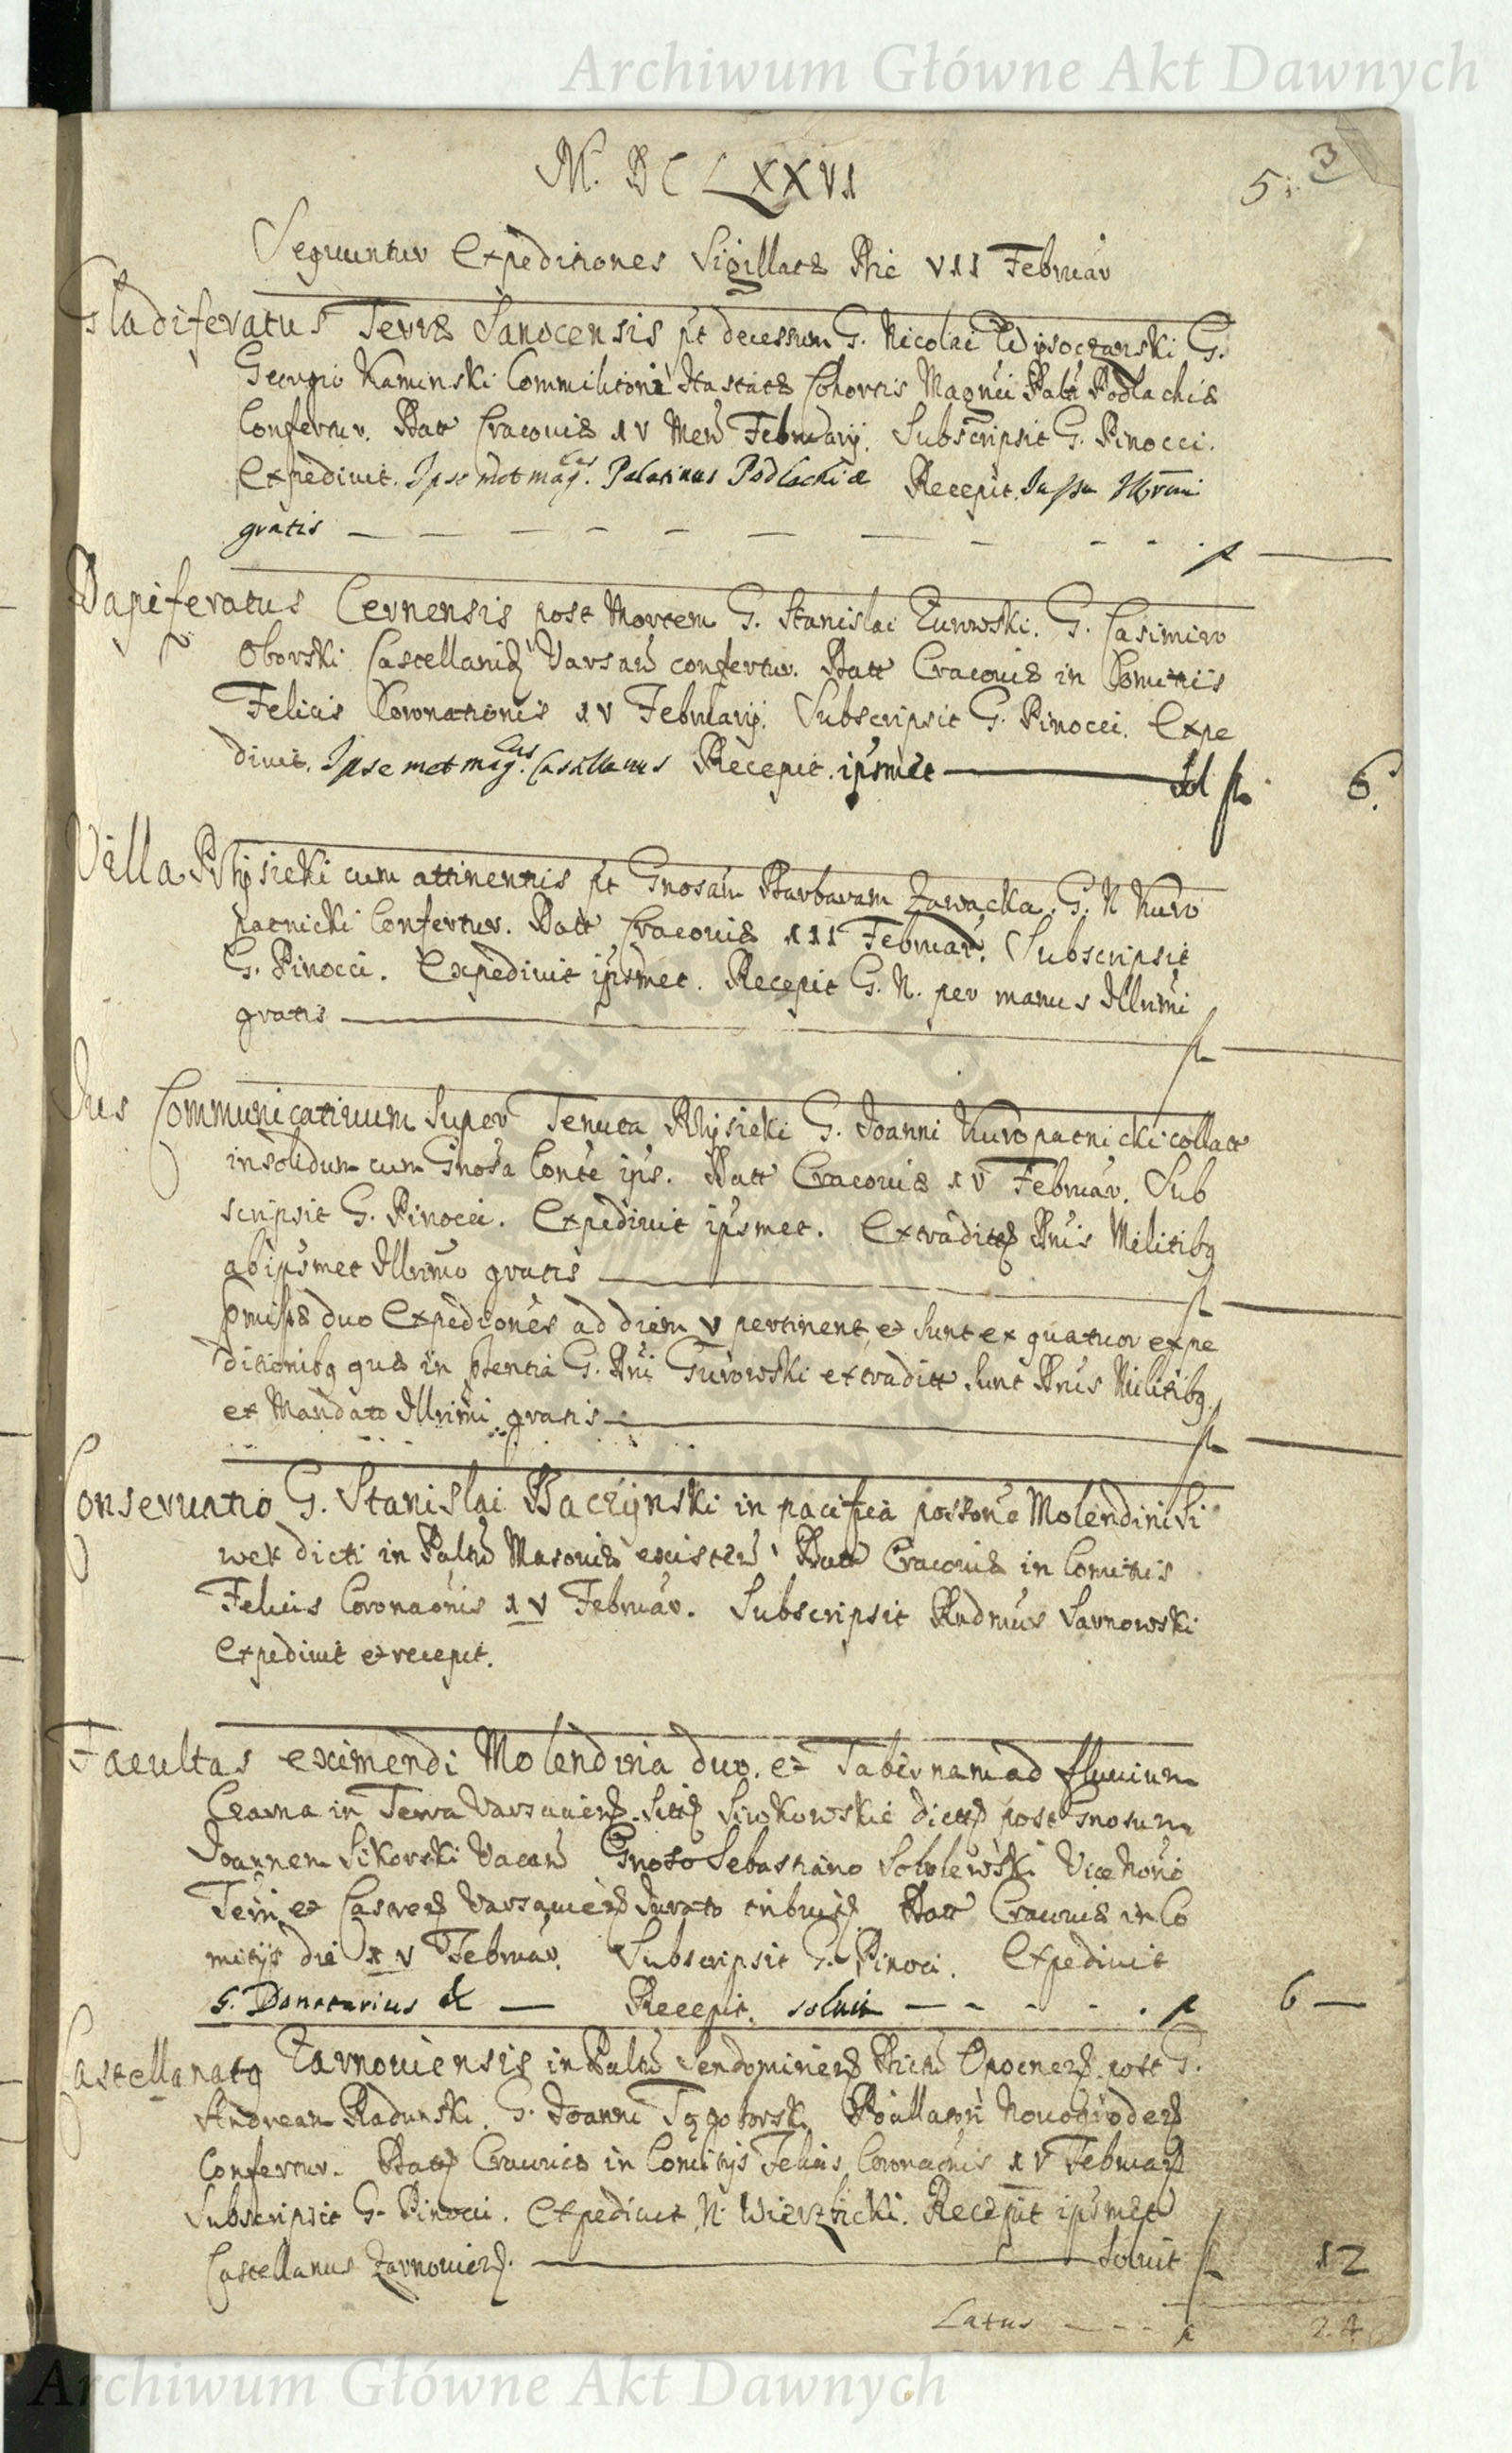 Archiwum Główne Akt Dawnych
M. DC LXXVI
5. 3
Sequuntur Expeditiones Sigillatæ Die VII Februar
Gladiferatus Terræ Sanocensis pt decessum G. Nicolai Wysoczanski G.
Georgio Kaminski Commilitoni Hastatæ Cohortis Magnci Palt Podlachiæ
Confertur. Datt Cracoviæ XV Mens Februarij. Subscripsit G. Pinocci.
Expedivit. Ipsemet mag.cus Palatinus Podlachiæ Recepit. Jussu Illrmi
gratis
Dapiferatus Cernensis post Mortem G. Stanislai Zurowski. G. Casimiro
Oborski Castellanid Varsaw confertur. Datt Cracoviæ in Comitiis
Felicis Coronationis XV Februarij. Subscripsit G. Pinocci. Expe
divit. Ipsemet mag.cus Castellanus Recepit. ipsmet sol fl. 6.
Villa Rhysieki cum attinentiis pt Gnosam Barbaram Zawacka. G. N Kuro
patnicki Confertur. Datt Cracoviæ III Februar. Subscripsit
G. Pinocci. Expedivit ipsmet. Recepit G. N. per manus Illrmi
gratis fl
Jus Communicativum super Tenuta Rhysieki G. Joanni Kuropatnicki collatt
insolidum cum Gnosa Conte ips. Datt Cracoviæ XV Februar. Sub
scripsit G. Pinocci. Expedivit ipsmet. Extradit Dnis Militibq
ab ipsmet Illrmo gratis fl
Pmissæ duo Expediones ad diem V pertinent, et sunt ex quatuor expe
ditionibq quæ in pſentia G. Dni Gurowski extraditt sunt Dnis Militibq
ex Mandato Illrimi gratis fl
Conservatio G. Stanislai Baczynski in pacifica possone Molendini Si
wek dicti in Paltu Masoviæ existen Datt Cracoviæ in Comitiis
Felicis Coronaonis XV Februar. Subscripsit Rndmus Sarnowski
Expedivit et recepit.
Facultas eximendi Molendina duo. et Tabernam ad fluvium
Czarna in Terra Varsavien. Sitt Sirokowskie dictt post Gnosum
Joannem Sikorski Vacan Gnoso Sebastiano Sobolewski Vice
et Castren Varsavien Jurato tribuit. Datt Cracoviæ in Co
mitijs die XV Februar. Subscripsit G. Pinoci. Expedivit
G. Donatarius et Recepit. solvit fl 6
Castellanatq Zarnoviensis in Paltu Sendomirien Opocnen. post G.
Andream Radunski. G. Joanni Novogroden
Confertur. Datt Cracoviæ in Comitijs Felicis Coronaonis XV Februar
Subscripsit G. Pinocci. Expedivit N. Wierzbicki. Recepit ipsmet
Castellanus Zarnovien. Solvit fl 12
Latus fl 24
Archiwum Główne Akt Dawnych